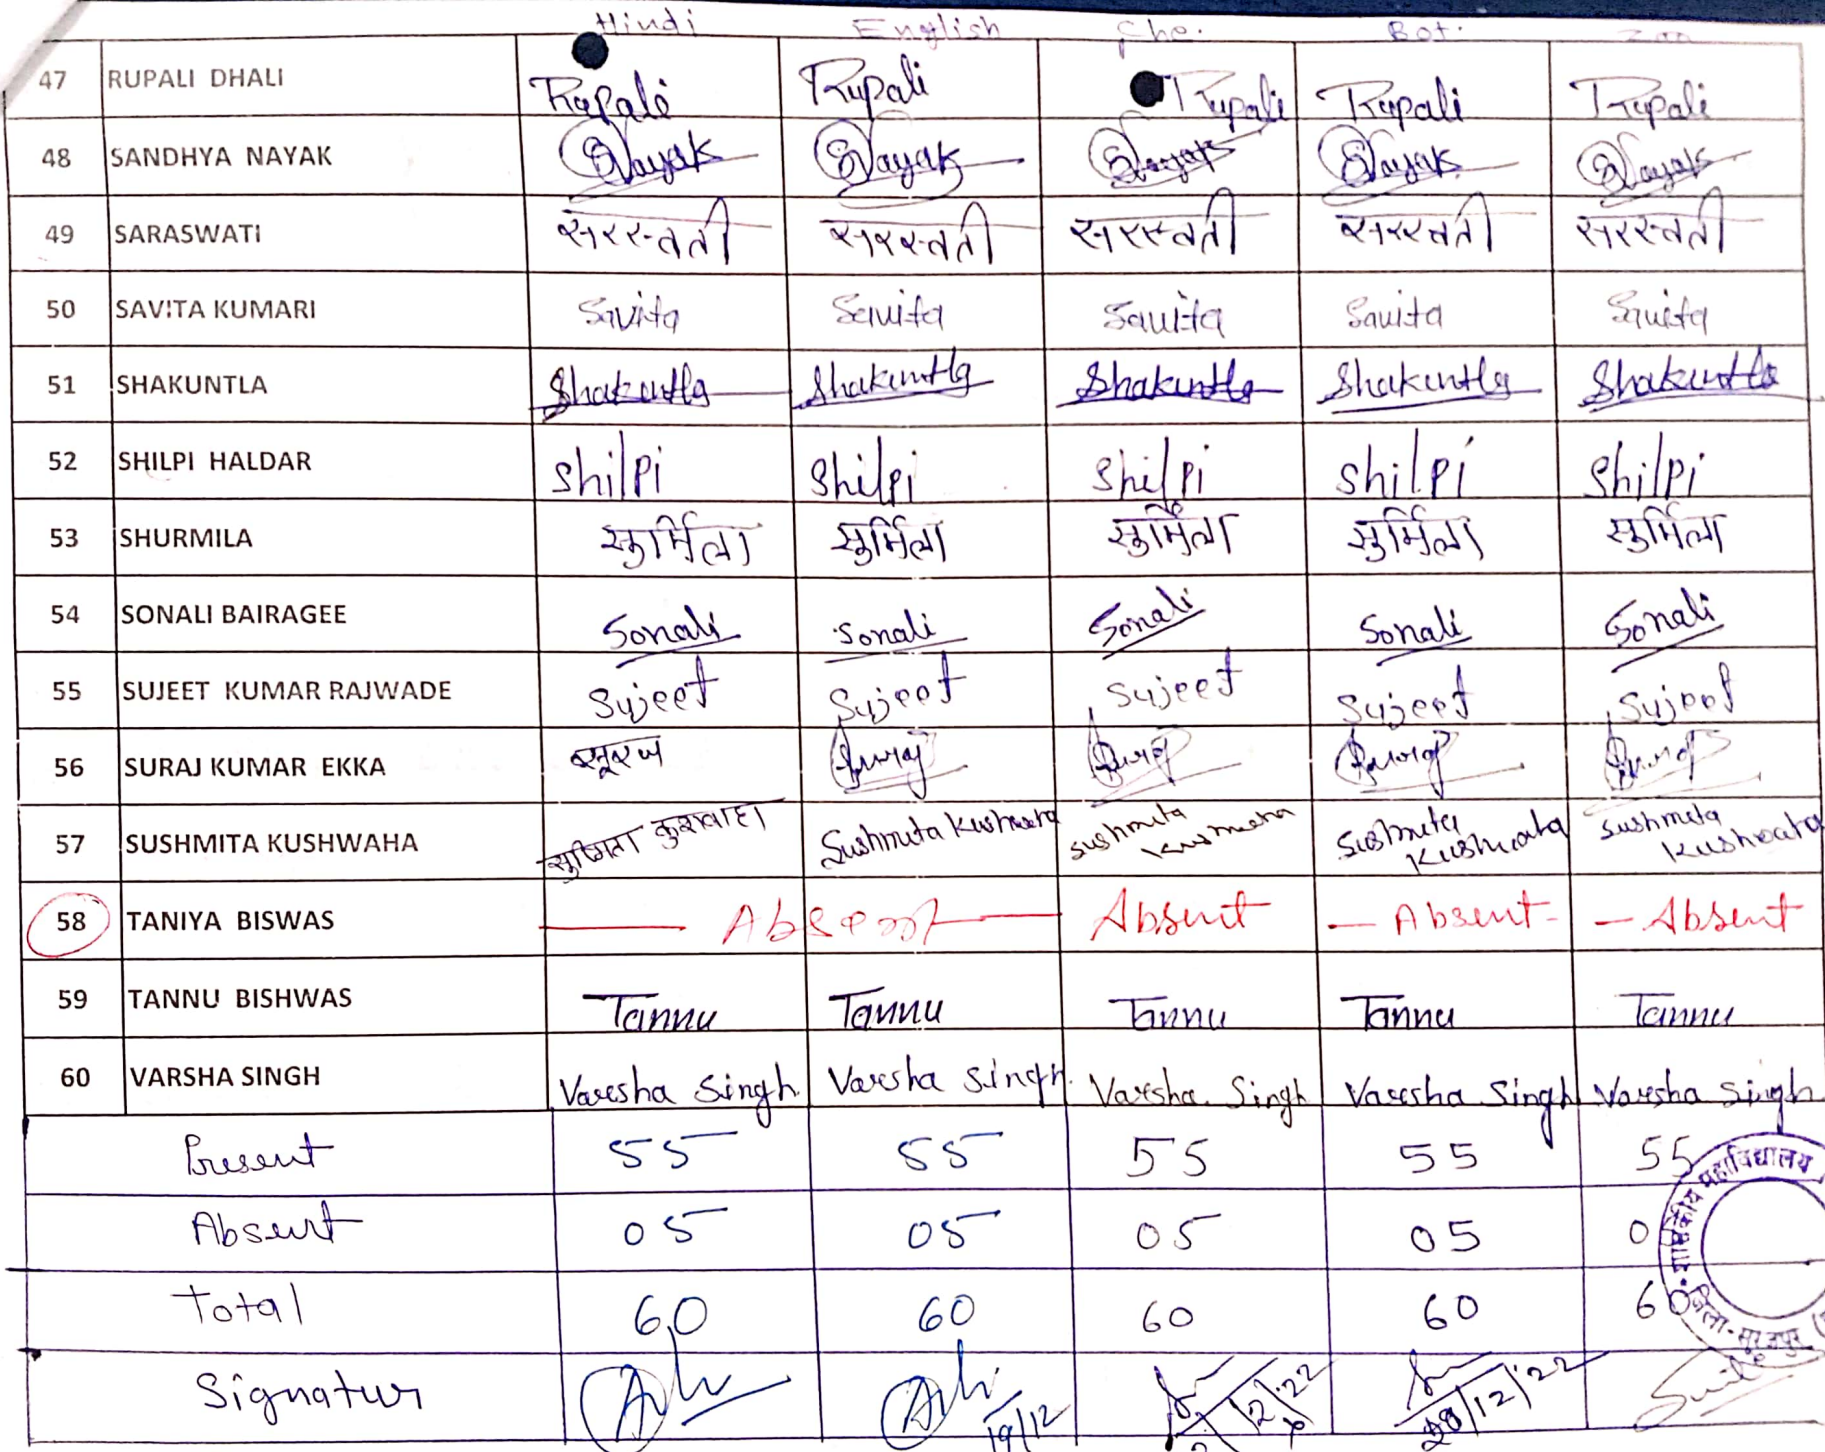 Hindi English Che. Bot. Zoo
47 RUPALI DHALI Rupali Rupali Rupali Rupali Rupali
48 SANDHYA NAYAK SNayak SNayak SNayak SNayak SNayak
49 SARASWATI सरस्वती सरस्वती सरस्वती सरस्वती सरस्वती
50 SAVITA KUMARI Savita Savita Savita Savita Savita
51 SHAKUNTLA Shakuntla Shakuntla Shakuntla Shakuntla Shakuntla
52 SHILPI HALDAR Shilpi Shilpi Shilpi Shilpi Shilpi
53 SHURMILA सुर्मिला सुर्मिला सुर्मिला सुर्मिला सुर्मिला
54 SONALI BAIRAGEE Sonali Sonali Sonali Sonali Sonali
55 SUJEET KUMAR RAJWADE Sujeet Sujeet Sujeet Sujeet Sujeet
56 SURAJ KUMAR EKKA सूरज Suraj Suraj Suraj Suraj
57 SUSHMITA KUSHWAHA सुष्मिता कुशवाहा Sushmita Kushwaha Sushmita Kushwaha Sushmita Kushwaha Sushmita Kushwaha
58 TANIYA BISWAS Absent Absent Absent Absent
59 TANNU BISHWAS Tannu Tannu Tannu Tannu Tannu
60 VARSHA SINGH Varsha Singh Varsha Singh Varsha Singh Varsha Singh Varsha Singh
Present 55 55 55 55 55
Absent 05 05 05 05 0
Total 60 60 60 60 60
Signatur 19/12 28/12/22
शासकीय महाविद्यालय
जिला-सूरजपुर